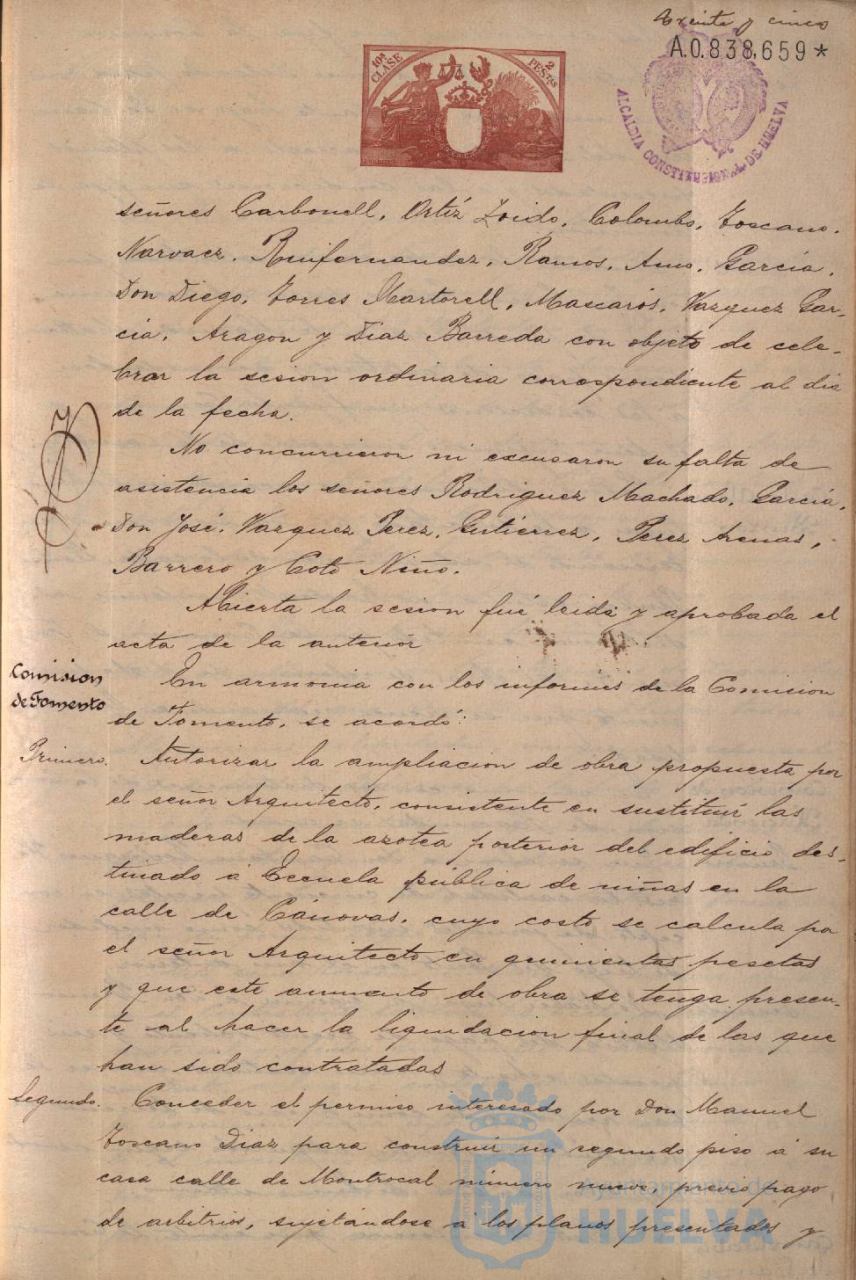 Treinta y cinco
A.0.838,659*
10ª CLASE
2 PESTAS
ALCALDIA CONSTITUCIONAL DE HUELVA
señores Carbonell, Ortíz Zoido, Colombo, Toscano,
Narvaez, Ruifernandez, Ramos, Amo, García,
Don Diego, Torres Martorell, Mascarós, Vazquez Gar-
cia, Aragon y Diaz Barreda con objeto de cele-
brar la sesion ordinaria correspondiente al dia
de la fecha.
No concurrieron ni excusaron su falta de
asistencia los señores Rodriguez Machado, García,
Don José, Vazquez Perez, Gutierrez, Perez Arenas,
Barrero y Coto Niño.
Abierta la sesion fué leida y aprobada el
acta de la anterior
Comision
de Fomento
En armonia con los informes de la Comision
de Fomento, se acordó:
Primero. Autorizar la ampliacion de obra propuesta por
el señor Arquitecto, consistente en sustituir las
maderas de la azotea posterior del edificio des-
tinado á Escuela pública de niñas en la
calle de Cánovas, cuyo costo se calcula po
el señor Arquitecto en quinientas pesetas
y que este aumento de obra se tenga presen-
te al hacer la liquidacion final de las que
han sido contratadas
Segundo. Conceder el permiso interesado por Don Manuel
Toscano Diaz para construir un segundo piso á su
casa calle de Montrocal número nueve, previo pago
de arbitrios, sujetándose á los planos presentados y
AYUNTAMIENTO DE
HUELVA